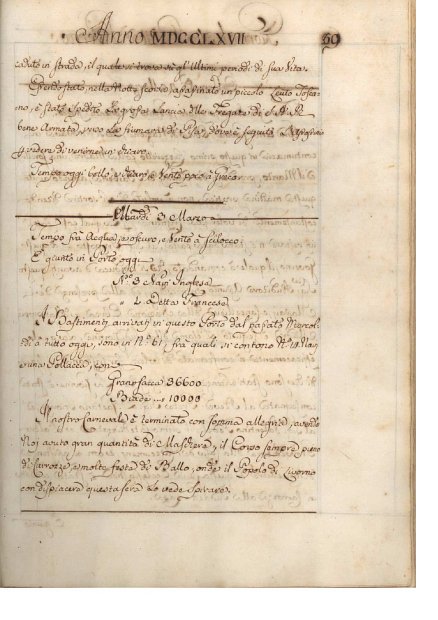 Anno MDCCLXVII 39
caduto in strada, il quale si trova agl'Ultimi periodi di sua Vita.
Essendo stato nella Notte scorsa assassinato un piccolo Leuto Tosca-
no, è stato spedito La grossa Lancia delle Fregate di S. A. R.
bene Armata, verso La fiumara di Pisa, dove è seguita
p vedere di venirne in chiaro.
Tempo oggi bello, e chiaro, e Vento poco à
Martedì 3 Marzo
Tempo frà Acqua, e oscuro, e Vento à Scilocco.
E giunto in Porto oggi
N.º 3 Navi Inglesi
" 2 Dette Francesi
I Bastimenti arrivati in questo Porto dal passato Mercol-
dì à tutto oggi, sono in N.º 61 frà quali, si contono N.º Navi,
e una Pollacca, con
Grano sacca 36600
Biade 10000
Il nostro Carnevale è terminato con somma allegria, avendo
Noi avuto gran quantità di Maschere, il Corso sempre pieno
di Carrozze, e molte feste di Ballo, onde il Popolo di Livorno
con dispiacere questa sera Lo vede spirare.